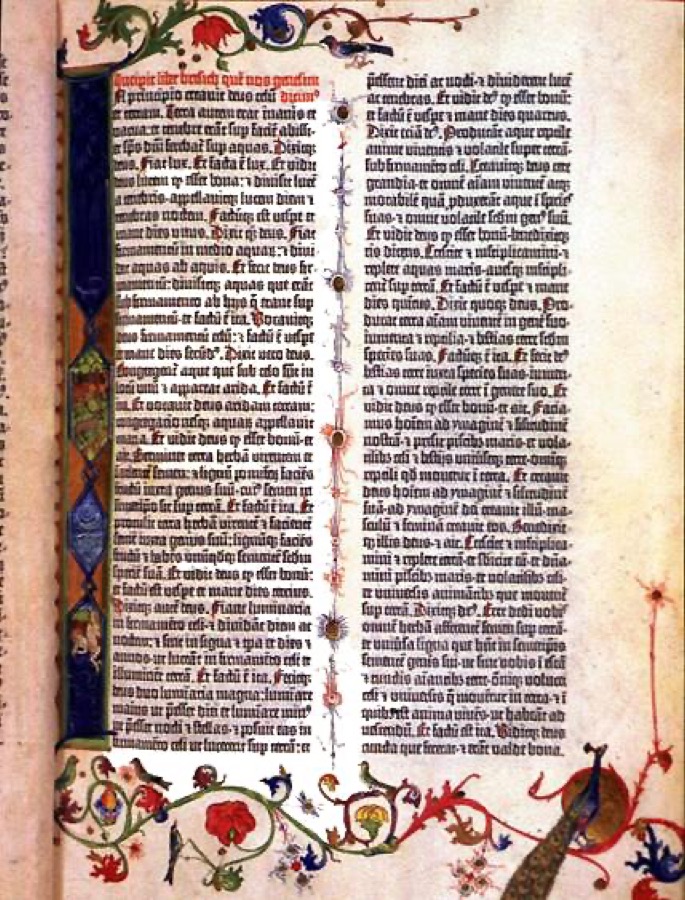 Incipit liber bresith quē nos genesim
In principio creavit deus celū dicim⁹
et terram. Terra autem erat inanis et
vacua: et tenebre erāt sup faciē abissi:
et spūs dñi ferebat͛ sup aquas. Dixitq;
deus. Fiat lux. Et facta ē lux. Et vidit
deus lucem ꝙ esset bona: ⁊ divisit lucē
a tenebris-appellavitq; lucem diem ⁊
tenebras noctem. Factūq; est vespe et
mane dies unus. Dixit qꝫ deus. Fiat
firmamentū in medio aquarū: ⁊ divi-
dat aquas ab aquis. Et fecit deus fir-
mamentū: divisitq; aquas que erāt
sub firmamento ab hijs q̄ erant sup
firmamentū: et factū ē ita. Vocavitq;
deus firmamentū celū: ⁊ factū ē vespe
et mane dies secūd⁹. Dixit vero deus.
Congregent͛ aque que sub celo sūt in
locū unū ⁊ appareat arida. Et factū ē
ita. Et vocavit deus aridam terram:
congregacionesq; aquarū appellavit
maria. Et vidit deus ꝙ esset bonū-et
ait. Germinet terra herbā virentem et
facientē semen: ⁊ lignū pomiferū faciēs
fructū iuxta genus suū-cui⁹ semen in
semetipso sit sup terrā. Et factū ē ita. Et
protulit terra herbā virentē ⁊ facientē
semē iuxta genus suū: lignūq; faciēs
fructū ⁊ habēs unūqdq; sementē scdm
speciē suā. Et vidit deus ꝙ esset bonū:
et factū est vespe et mane dies tercius.
Dixitq; autē deus. Fiant luminaria
in firmamēto celi-⁊ dividāt diem ac
noctem: ⁊ sint in signa ⁊ tpa et dies ⁊
annos-ut luceāt in firmamēto celi et
illuminēt terrā. Et factū ē ita. Fecitq;
deus duo luminaria magna: luminare
maius ut pesset diei et luminare min⁹
ut pesset nocti ⁊ stellas-⁊ posuit eas in
firmamēto celi ut lucerent sup terrā: et
pessent diei ac nocti-⁊ dividerent lucē
ac tenebras. Et vidit de⁹ ꝙ esset bonū:
et factū ē vespe et mane dies quartus.
Dixit eciā de⁹. Producāt aque reptile
anime viventis ⁊ volatile super terrā-
sub firmamēto celi. Creavitq; deus cete
grandia-et omnē aīam viventē atq;
motabilē quā pduxerāt aque ī species
suas-⁊ omne volatile scdm gen⁹ suū.
Et vidit deus ꝙ esset bonū-benedixitq;
eis dicens. Crescite ⁊ multiplicamini-⁊
replete aquas maris-avesq; multipli-
cent͛ sup terrā. Et factū ē vespe ⁊ mane
dies quintus. Dixit quoq; deus. Pro-
ducat terra aīam viventē in genē suo-
iumenta ⁊ reptilia-⁊ bestias terre scdm
species suas. Factūq; ē ita. Et fecit de⁹
bestias terre iuxta species suas-iumen-
ta ⁊ omne reptile terre ī genere suo. Et
vidit deus ꝙ esset bonū-et ait. Facia-
mus hoīem ad ymaginē ⁊ silitudinē
nostrā-⁊ presit piscibꝫ maris-et vola-
tilibꝫ celi ⁊ bestijs universeq; terre-omniq;
reptili qd movetur ī terra. Et creavit
deus hoīem ad ymaginē ⁊ silitudinē
suā-ad ymaginē dei creavit illū-ma-
sculū ⁊ feminā creavit eos. Benedixitq;
illis deus-⁊ ait. Crescite ⁊ multiplica-
mini ⁊ replete terrā-et subicite eā-⁊ dña-
mini piscibꝫ maris-et volatilibꝫ celi-
et universis animātibꝫ que moventur
sup terrā. Dixitq; de⁹. Ecce dedi vobis
omnē herbā afferentē semen sup terrā-
et universa ligna que habēt in semetipis
sementē genis sui-ut sint vobis ī escā
⁊ cunctis aīantibꝫ terre-omniq; volucri
celi ⁊ universis q̄ moventur in terra-⁊ ī
quibꝫ est anima vivēs-ut habeāt ad
vescendū. Et factū est ita. Viditq; deus
cuncta que fecerat-⁊ erāt valde bona.